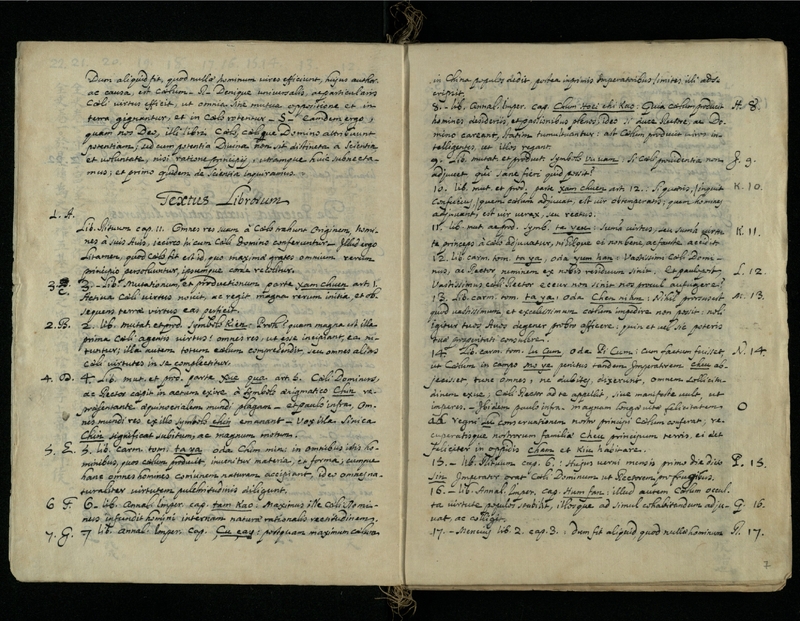 Dum aliquid fit, quod nullae hominum vires efficiunt, hujus author,
ac causa, est coelum. Denique universalis, ac particularis
Coeli virtus efficit, ut omnia sine mutua oppositione et in
terra gignantur, et in Coelo rotentur. Eamdem ergo,
quam nos Deo, illi libri Coelo, Coelique Domino attribuunt
potentiam; sed cum potentia Divina non sit distincta a scientia
et voluntate, nisi ratione principij, utramque huic subnecta-
mus; et primo quidem de Scientia inquiramus.
Textus Librorum
1. A.
Lib. Rituum cap. 11. Omnes res suam a Coelo trahunt Originem, homi-
nes a suis Avis, ideo hi cum Coeli Domino conferuntur. Illud ergo
Litamen, quod Coelo fit est id, quo maximas grates omnium rerum
principio persolvuntur, ipsumque corde recolitur.
3. C. 3. Lib. Mutationum, et productionum parte xam chuen art. 1.
Activa Coeli virtus novit, ac regit magna rerum initia, et ob-
sequens terrae virtus eas perficit.
2. B. 2. lib. mutat. et prod. Symbolo Kien: Proh! quam magna est illa
prima Coeli agentis virtus! omnes res, ut esse incipiant, ea ni-
tuntur; illa autem totum coelum comprehendit, seu omnes alias
coeli virtutes in se complectitur.
4. D. 4. Lib. mut. et prod. parte Xue qua art. 6. Coeli Dominus,
ac Rector coepit in actum exire a Symbolo aenigmatico Chin re-
praesentante aequinoctialem mundi plagam - et paulo infra, Om-
nes mundi res ex illo symbolo chin emanant - Vox illa Sinica
Chin significat subitum, ac magnum motum.
5. E. 5. lib. carm. tomo ta ya oda Chim min: in omnibus istis ho-
minibus, quos coelum produxit invenitur materia, ea forma; cumque
hanc omnes homines communem naturam accipiant, ideo omnes na-
turaliter virtutem, pulchritudinis diligunt.
6 F. 6. lib. Annal. Imper. cap. tam Kao: Maximus ille Coeli Domi-
nus infundit homini internam naturae rationalis rectitudinem.
7. G. 7 lib. Annal. Imper. cap. Çu cay: postquam maximum coelum
in China populos dedit, postea in primis Imperatoribus limites illi ads-
cripsit.
8. lib. Annal. Imper. cap. Chum Hoei chi Kao: Quia coelum producit H. 8.
homines desiderijs, et passionibus plenos, ideo si duce Rectore, ac Do-
mino careant, statim tumultuantur: ast Coelum producit viros in-
telligentes, ut illos regant.
9. Lib. mutat. et product. Symbolo vu vam: Si Coeli providentia non J. 9.
adjuvet qui sane fieri quid possit?
10. lib. mut. et prod. parte xam chuen art. 12. Si quaeris, inquit K. 10.
Confucius, quem coelum adjuvat, est vir obtemperatus; quem homines
adjuvant, est vir verax, seu rectus.
11. lib. mut. ac prod. Symb. ta yeu: virtu- K. 11.
te princeps a coelo adjuvatur, nihilque ei non bene, ac fauste accidit.
12. lib. carm. tom. ta ya, oda yun han: Vastissimi Coeli Domi-
nus, ac Rector neminem ex nobis residuum sinit. Et paulo post, L. 12.
Vastissimus coeli Rector ecur non sinit nos procul aufugere?
13. Lib. carm. tom. ta ya, Oda Chen niam. Nihil prorsus est M. 13.
quod vastissimum et excelsissimum coelum impedire non possit; noli
igitur tuos Avos degener probro afficere; quin et vel sic posteris
tuis consulere.
14. Lib. carm. tom. lu Çum Oda Pi Cum: cum factum fuisset, N. 14.
ut Coelum in campo Mo ye penitus tandem Imperatorem Cheu ab-
jecisset turc omnes, ne dubites, dixerunt, Omnem sollicitu-
dinem exue; Coeli Rector ad te appellit, sive manifeste vult, ut
imperes. - Ibidem paulo infra, magnam longae vitae felicitatem O
ad Regni Lu conservationem nostro principi Coelum conferat; re-
cuperatisque nostrorum familiae Cheu principum terris, ei det
feliciter in oppidis Cham et Kiu habitare.
15. - Lib. Rituum cap. 6. Hujus verni mensis primo die dicto P. 15.
Sin Imperator orat Coeli Dominum ut Rectorem, pro frugibus.
16. - lib. Annal. Imper. cap. Hum fan: illud autem coelum occul-
ta virtute populos stabilit, illosque ad simul cohabitandum adju- Q. 16.
vat, ac colligit.
17. - Mencius lib. 2. cap. 3. Dum fit aliquid quod nullae hominum R. 17.
7